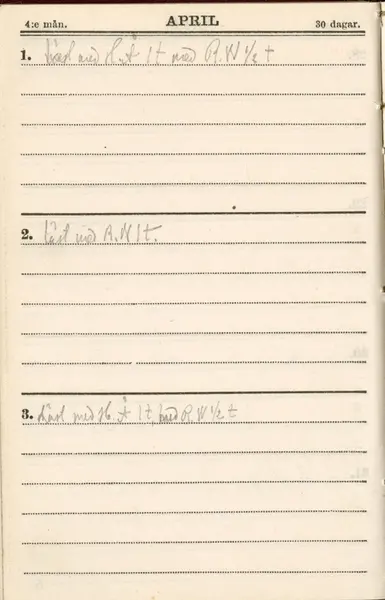 4:e mån. APRIL 30 dagar.
1. läst med H. Å 1 t med R. W ½ t
2. läst med R. W 1 t.
3. läst med H. Å 1 t, med R. W ½ t